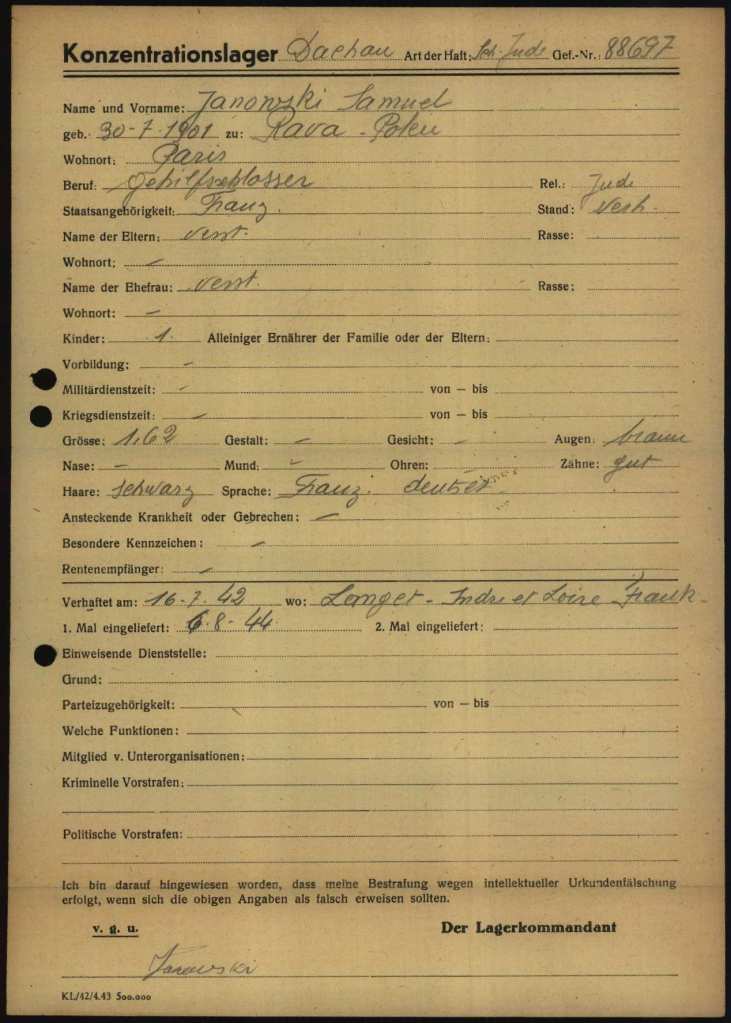 Konzentrationslager Dachau Art der Haft: Sch. Jude Gef.-Nr.: 88697
Name und Vorname: Janowski Samuel
geb. 30-7.1901 zu: Rava-Polen
Wohnort: Paris
Beruf: Gehilfschlosser Rel.: Jude
Staatsangehörigkeit: Franz. Stand: Verh.
Name der Eltern: verst. Rasse:
Wohnort: -
Name der Ehefrau: verst. Rasse:
Wohnort: -
Kinder: 1. Alleiniger Ernährer der Familie oder der Eltern:
Vorbildung: -
Militärdienstzeit: - von — bis
Kriegsdienstzeit: - von — bis
Grösse: 1.62 Gestalt: - Gesicht: - Augen: braun
Nase: - Mund: - Ohren: - Zähne: gut
Haare: schwarz Sprache: Franz. deutsch
Ansteckende Krankheit oder Gebrechen: -
Besondere Kennzeichen: -
Rentenempfänger: -
Verhaftet am: 16-7-42 wo: Indre et Loire Frank.
1. Mal eingeliefert: 6-8-44 2. Mal eingeliefert:
Einweisende Dienststelle:
Grund:
Parteizugehörigkeit: von — bis
Welche Funktionen:
Mitglied v. Unterorganisationen:
Kriminelle Vorstrafen:
Politische Vorstrafen:
Ich bin darauf hingewiesen worden, dass meine Bestrafung wegen intellektueller Urkundenfälschung
erfolgt, wenn sich die obigen Angaben als falsch erweisen sollten.
v. g. u. Der Lagerkommandant
Janowski
KL/42/4.43 500.000